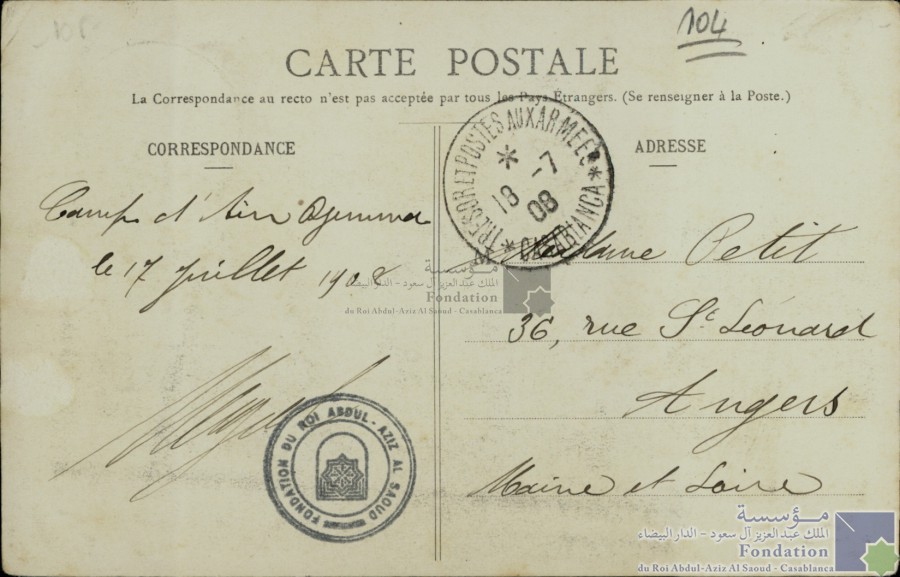 104
CARTE POSTALE
La Correspondance au recto n'est pas acceptée par tous les Pays Étrangers. (Se renseigner à la Poste.)
CORRESPONDANCE
ADRESSE
TRESOR ET POSTES AUX ARMEES
* CASABLANCA *
18 -7
08
Camp d'Ain Djemma
le 17 Juillet 1908
Madame Petit
36, rue St Léonard
Angers
Maine et Loire
مؤسسة
الملك عبد العزيز آل سعود - الدار البيضاء
Fondation
du Roi Abdul-Aziz Al Saoud - Casablanca
FONDATION DU ROI ABDUL-AZIZ AL SAOUD
مؤسسة
الملك عبد العزيز آل سعود - الدار البيضاء
Fondation
du Roi Abdul-Aziz Al Saoud - Casablanca